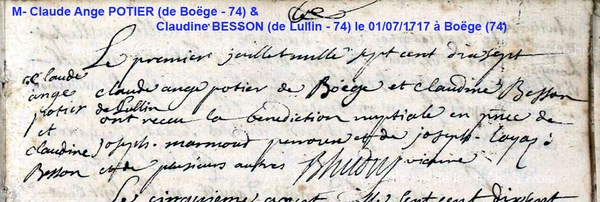 M- Claude Ange POTIER (de Boëge - 74) &
Claudine BESSON (de Lullin - 74) le 01/07/1717 à Boëge (74)
Le premier juillet mille sept cent dixsept
claude ange potier de Boëge et claudine Besson
de Lullin
ont receu la benediction nuptiale en pnce de
joseph marmoud et de joseph
et de plusieurs autres vicaire
claude
ange
potier
et
claudine
Besson
Le cinquieme mille sept cent dixsept